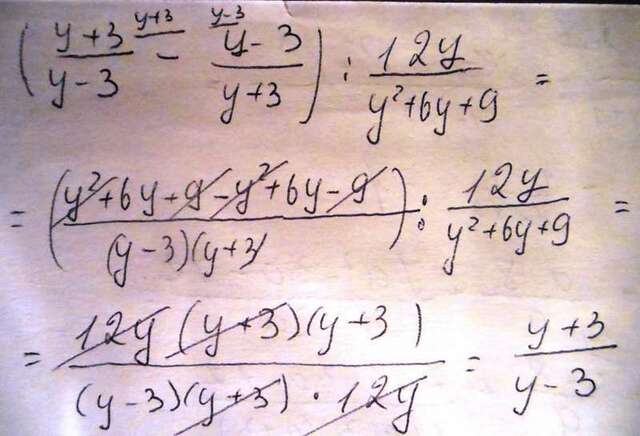 ( (y+3)/(y-3) ^{y+3} - ^{y-3} (y-3)/(y+3) ) : 12y/(y²+6y+9) =
= ( (y²+6y+9-y²+6y-9)/((y-3)(y+3) ) : 12y/(y²+6y+9) =
= (12y(y+3)(y+3))/((y-3)(y+3)·12y) = (y+3)/(y-3)